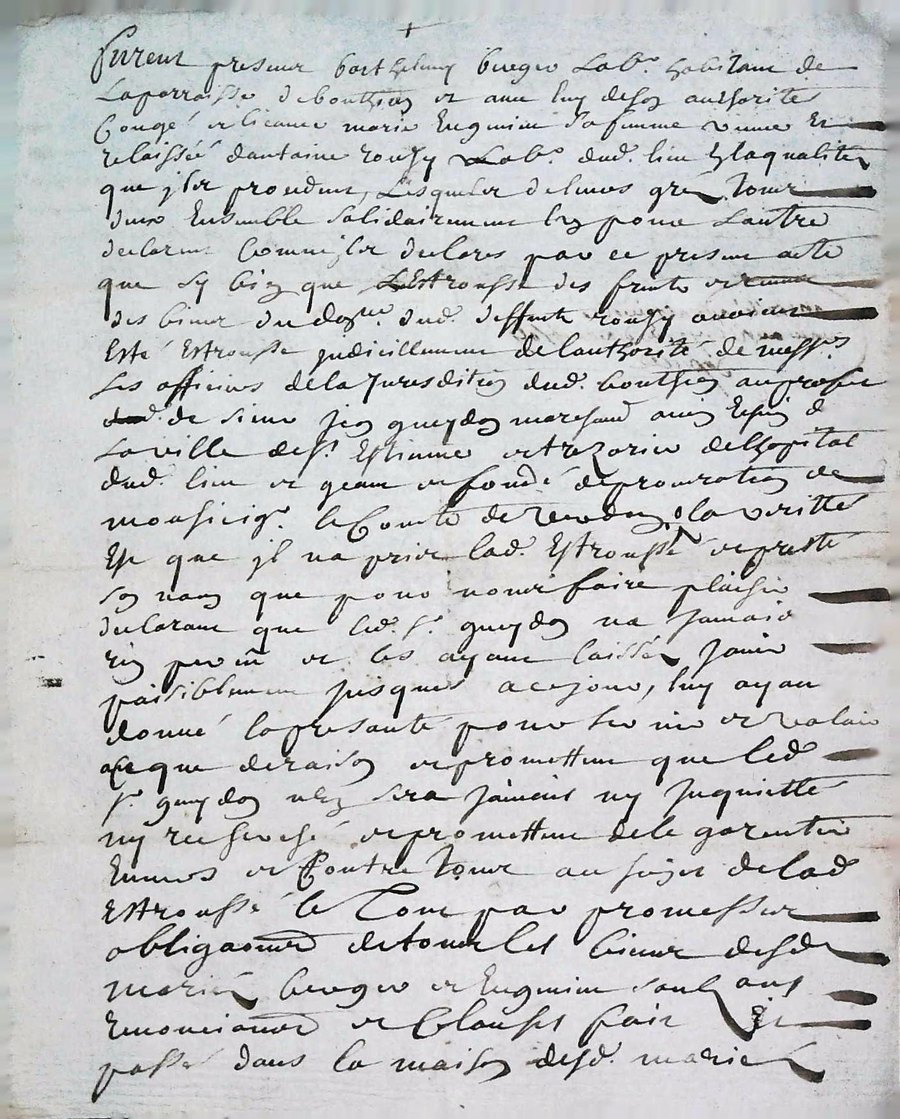 Furent presens barthelemy berger Lab.r habitant de
Laparraisse de bouthion et avec luy de son authorité
Congé et licance marie Enguinin sa femme vesve Et
relaissée dantoine rouzy Lab.r dud. lieu En laqualité
que jls proceddent, Lesquels de leurs gré Tous
deux Ensemble solidairement lun pour Lautre
declarent Comme jls declares par ce present acte
que sy bien que LEstrousse des fruits et revenus
des biens du dom.ne dud. deffunt rouzy avoient
Esté Estrousse judiciellement de lauthorité de mess.rs
Les officiers dela Jurisdition dud. bouthion auproffit
de sieur jean gueydon marchand
La ville de s.t Estienne et trezorier delhopital
dud. lieu et ayant et fondé de procuration de
monseig.r le Comte de la veritté
Est que jl na prise lad. Estrousse et presté
son nom que pour nous faire plaisir
declarant que led. s.r gueydon na jamais
rien perçu et les ayant laissés jouir
paisiblement jusques a ce jour, luy ayan
donné la presante pour luy et valoir
ce que de raison et promettent que led.
s.r gueydon nen sera jamais ny Inquietté
ny recherché et promettent de le garentir
Envers et Contre tous au sujet de lad.
Estrousse le Tout par promesses
obligaons de tous les biens desd.
mariés berger et Enguinin soubz aus
Renonciaons et Clauses fait Et
passé dans la maison desd. mariés